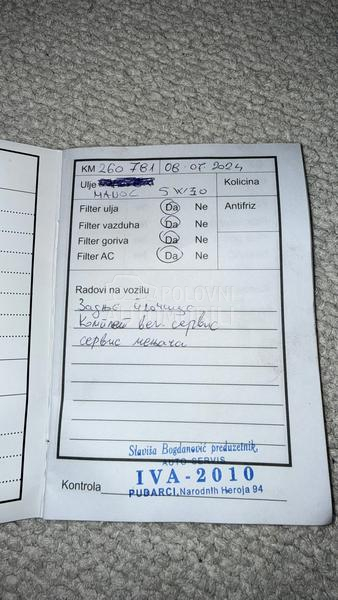 KM 260 781 08.07.2024
Ulje Kolicina
MANOL 5W30
Filter ulja Da Ne Antifriz
Filter vazduha Da Ne
Filter goriva Da Ne
Filter AC Da Ne
Radovi na vozilu
Задње плочице
Комплет вел. сервис
сервис мењача
Slaviša Bogdanović preduzetnik,
AUTO SERVIS
IVA-2010
Kontrola
PUBARCI, Narodnih Heroja 94